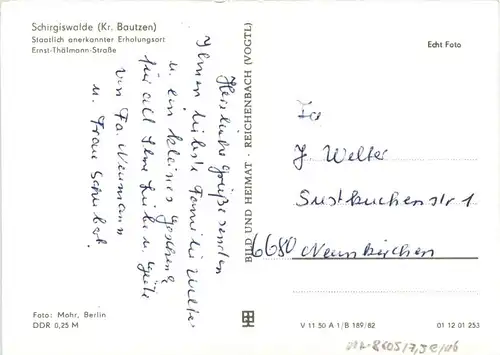 Schirgiswalde (Kr. Bautzen)
Staatlich anerkannter Erholungsort
Ernst-Thälmann-Straße
Herzliche Grüße senden
Ihnen liebste Familie Welter
u. ein kleines Geschenk
für all Ihre Liebe u. Güte
von Fa. Neumann
u. Frau Schubert.
BILD UND HEIMAT · REICHENBACH (VOGTL)
Echt Foto
Fa
J Welter
str 1
6680 Neunkirchen
Foto: Mohr, Berlin
DDR 0,25 M
V 11 50 A 1/B 189/82
01 12 01 253